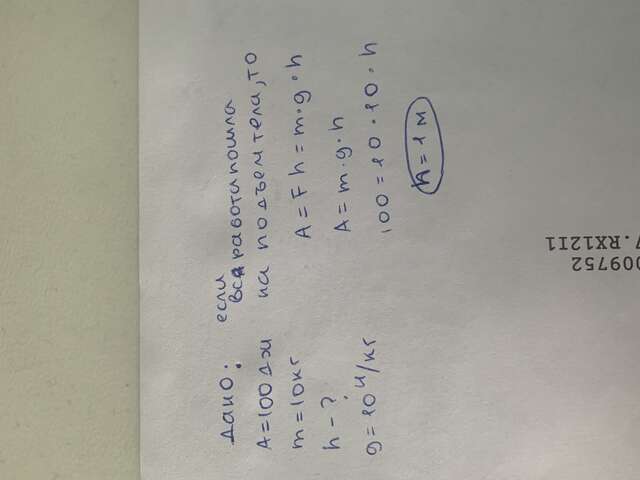 Дано:
A=100 дж
m=10кг
h-?
g=10 н/кг
если
вся работа пошла
на подъем тела, то
A=Fh=m·g·h
A=m·g·h
100=10·10·h
h=1м
009752
7.RX12I1